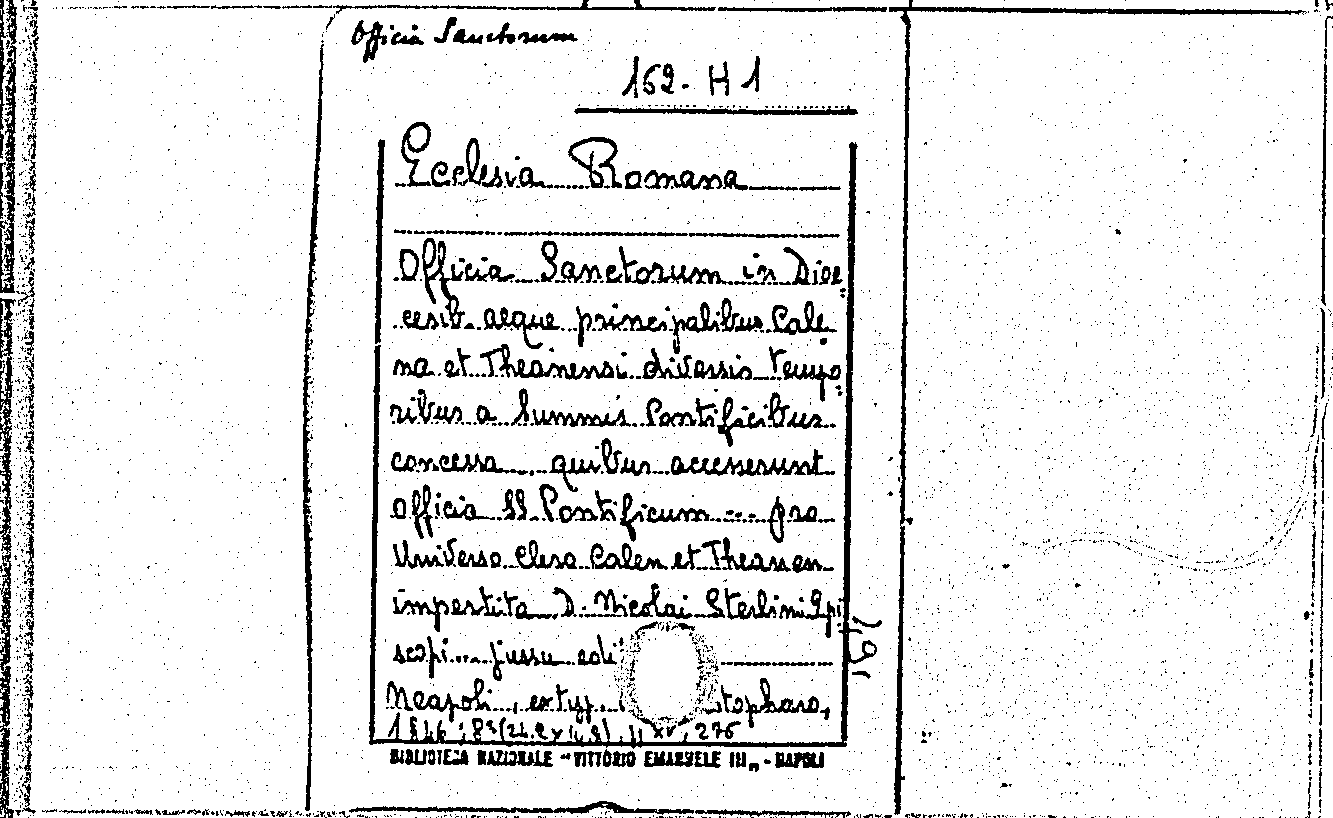 Officia Sanctorum
162. H 1
Ecclesia Romana
Officia Sanctorum in Dioe
cesib. aeque principalibus Cale
na et Theanensi diversis tempo
ribus a Summis Pontificibus
concessa, quibus accesserunt
officia SS Pontificum ... pro
Universo Clero Calen et Theanen
impertita D. Nicolai Sterlini Epi
scopi... jussu edi
Neapoli, ex typ.
1846; 8° XV, 276
BIBLIOTECA NAZIONALE "VITTORIO EMANUELE III" - NAPOLI